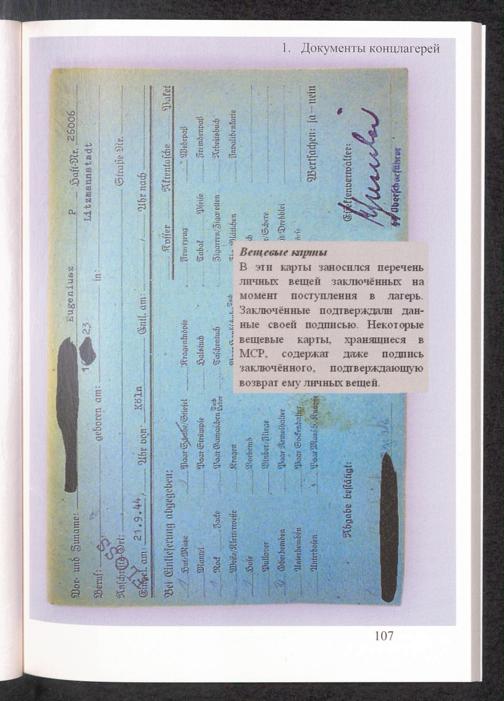 1. Документы концлагерей
Vor- und Zuname: Eugeniusz P Haft-Nr. 26006
Beruf: geboren am: 23 in: Litzmannstadt
Anschrifts-Ort: Straße Nr.
Eingel. am: 21.9.44, Uhr von: Köln Entl. am: Uhr nach
Bei Einlieferung abgegeben: Koffer Aktentasche Paket
Hut/Mütze Paar Schuhe/Stiefel Kragenknöpfe Feuerzeug Wehrpaß
Mantel Paar Strümpfe Halstuch Tabak Pfeife Fremdenpaß
Rock Jacke Paar Gamaschen Taschentuch Zigarren/Zigaretten Arbeitsbuch
Kragen Invalidenkarte
Hose Vorhemd
Pullover Binder/Fliege
Oberhemden Paar Aermelhalter
Unterhemden Paar Sockenhalter
Unterhosen Wertsachen: ja – nein
Abgabe bestätigt: Effektenverwalter:
Oberscharführer
Вещевые карты
В эти карты заносился перечень
личных вещей заключённых на
момент поступления в лагерь.
Заключённые подтверждали дан-
ные своей подписью. Некоторые
вещевые карты, хранящиеся в
МСР, содержат даже подпись
заключённого, подтверждающую
возврат ему личных вещей.
107